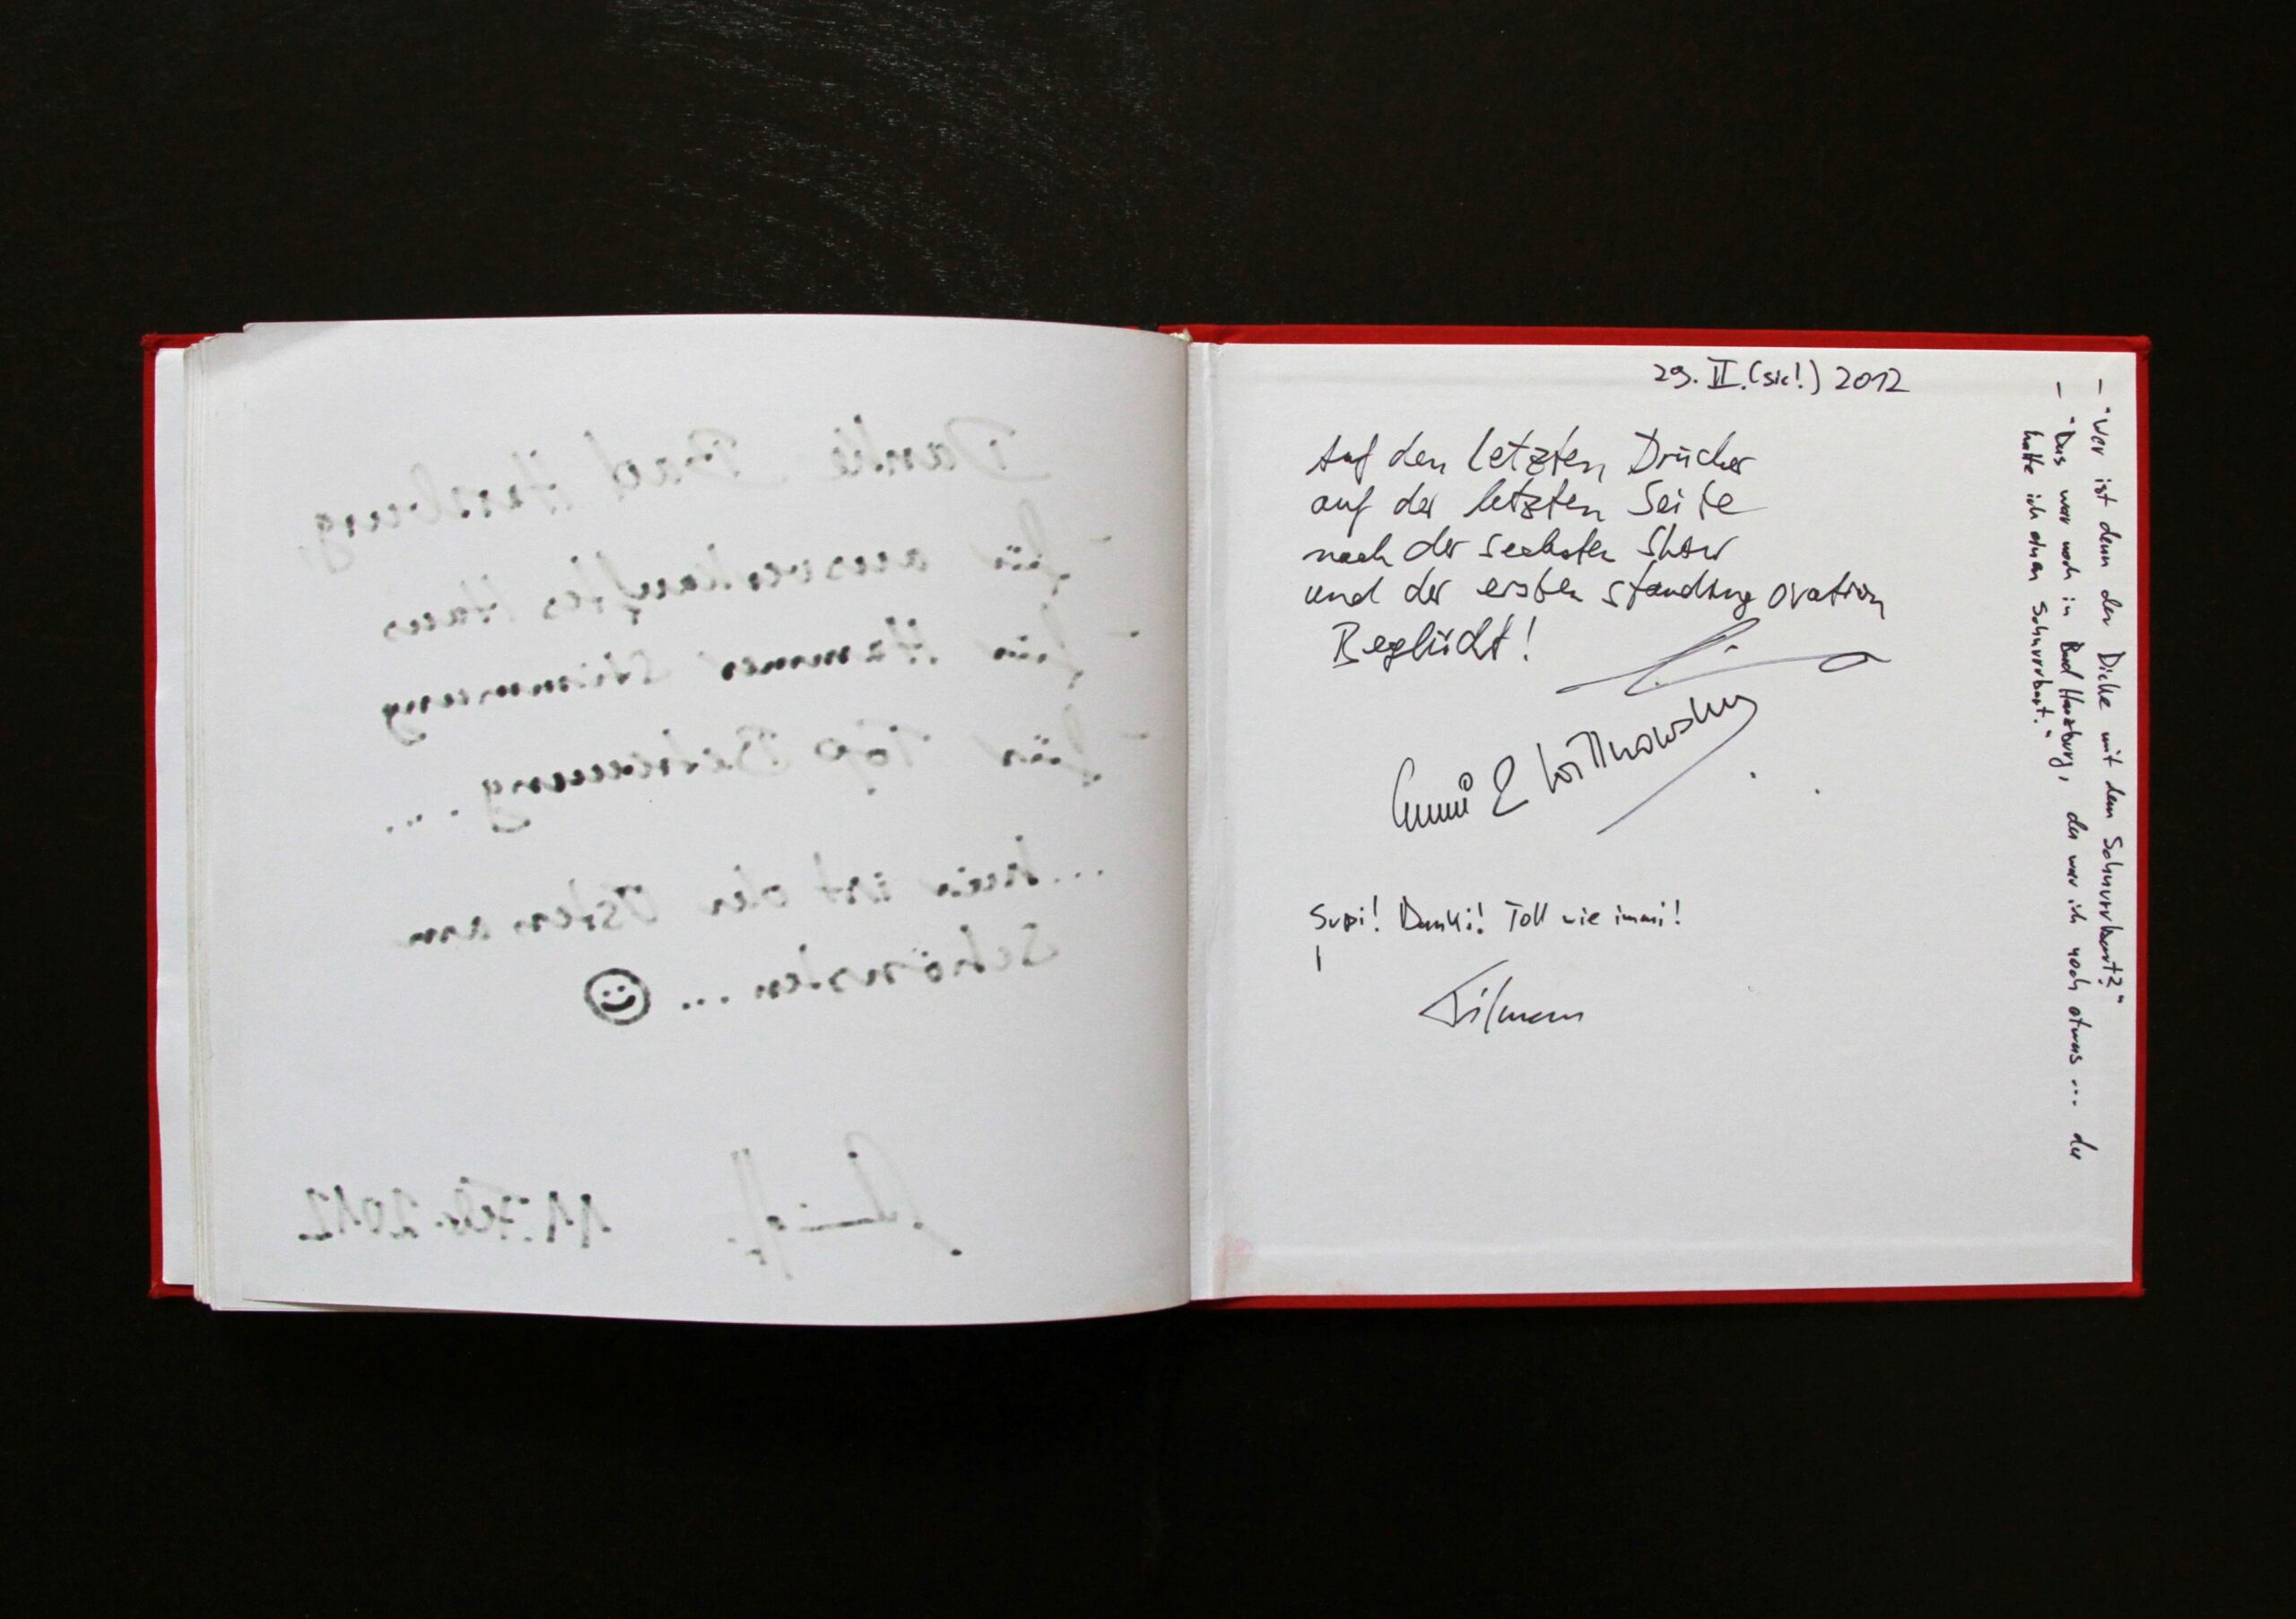 Danke Bad Harzburg,
- für ausverkauftes Haus
- für Hammer Stimmung
- für Top Betreuung ...
... hier ist der Osten am
Schönsten ... ☺
11. Feb. 2012
29. II. (sic!) 2012
Auf den letzten Drücker
auf der letzten Seite
nach der sechsten Show
und der ersten standing ovation
Beglückt!
Supi! Danki! Toll wie immi!
Tilmann
- "Wer ist denn der Dicke mit dem Schnurrbart?"
- "Das war noch in Bad Harzburg, da war ich noch etwas ... da
hatte ich einen Schnurrbart."